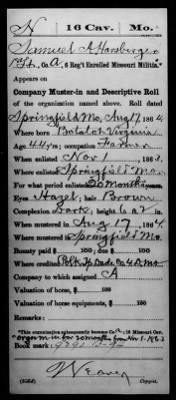 H 16 Cav. Mo.
Samuel A Harsberger
Pvt., Co. A, 6 Reg't Enrolled Missouri Militia.
Appears on
Company Muster-in and Descriptive Roll
of the organization named above. Roll dated
Springfield Mo, Aug 17, 1864
Where born Botetot Virginia
Age 44 y'rs; occupation Farmer
When enlisted Nov 1, 1863.
Where enlisted Springfield Mo.
For what period enlisted 20 months
Eyes Hazel; hair Brown
Complexion Dark; height 6 ft. 2 in.
When mustered in Aug 17, 1864.
Where mustered in Springfield Mo.
Bounty paid $ 100; due $ 100
Where credited Polk Co. Mo.
Company to which assigned A
Valuation of horse, $ 100
Valuation of horse equipments, $ 100
Remarks:
*This organization subsequently became Co. A, 16 Missouri Cav.
Organ. in for 20 months from Nov. 1, 1863
Book mark:
Weaver
(356d) Copyist.